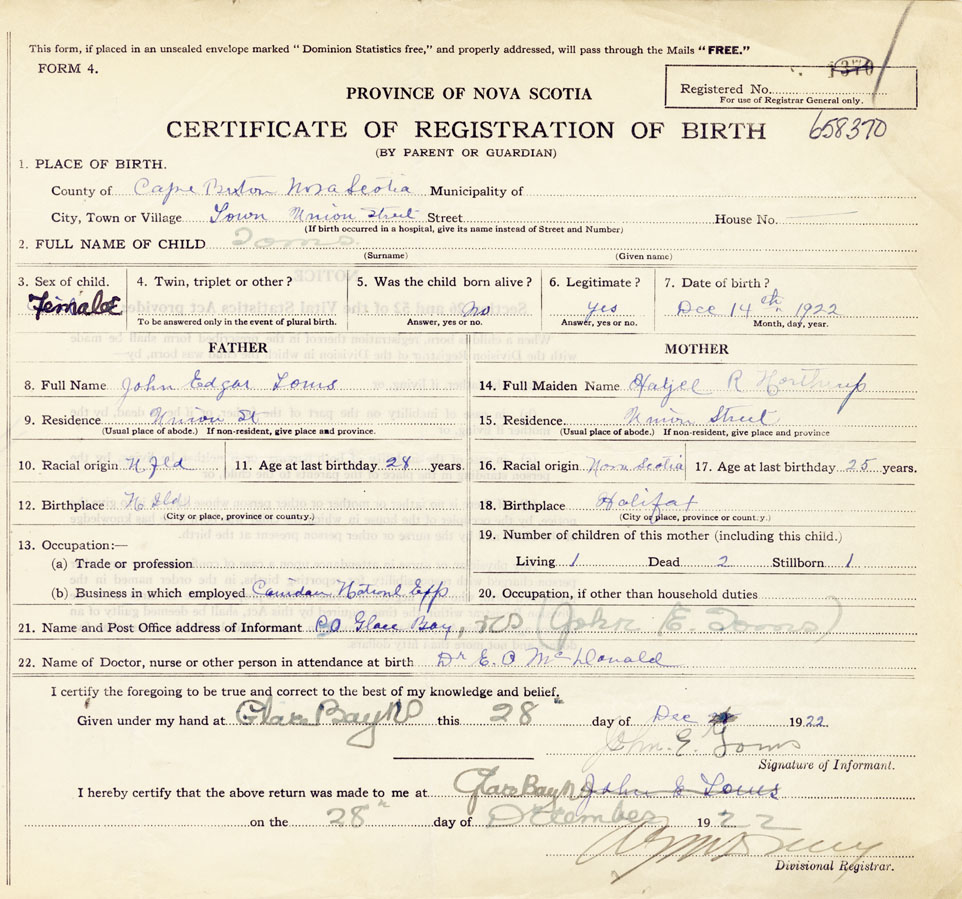 This form, if placed in an unsealed envelope marked “Dominion Statistics free,” and properly addressed, will pass through the Mails “FREE.”
FORM 4.
1370
Registered No.
For use of Registrar General only.
PROVINCE OF NOVA SCOTIA
CERTIFICATE OF REGISTRATION OF BIRTH 658370
(BY PARENT OR GUARDIAN)
1. PLACE OF BIRTH.
County of Cape Breton Nova Scotia Municipality of
City, Town or Village Town Union Street Street House No.
(If birth occurred in a hospital, give its name instead of Street and Number)
2. FULL NAME OF CHILD Toms
(Surname) (Given name)
3. Sex of child. 4. Twin, triplet or other? 5. Was the child born alive? 6. Legitimate? 7. Date of birth?
Female No yes Dec 14th 1922
To be answered only in the event of plural birth. Answer, yes or no. Answer, yes or no. Month, day, year.
FATHER MOTHER
8. Full Name John Edgar Toms 14. Full Maiden Name R Northrup
9. Residence Union St 15. Residence Union Street
(Usual place of abode.) If non-resident, give place and province. (Usual place of abode.) If non-resident, give place and province
10. Racial origin N Fld 11. Age at last birthday 28 years. 16. Racial origin Nova Scotia 17. Age at last birthday 25 years.
12. Birthplace N Fld 18. Birthplace Halifax
(City or place, province or country.) (City or place, province or country.)
13. Occupation:— 19. Number of children of this mother (including this child.)
(a) Trade or profession Living 1 Dead 2 Stillborn 1
(b) Business in which employed 20. Occupation, if other than household duties
21. Name and Post Office address of Informant Glace Bay, NS (John E. Toms)
22. Name of Doctor, nurse or other person in attendance at birth Dr E. O McDonald
I certify the foregoing to be true and correct to the best of my knowledge and belief.
Given under my hand at Glace Bay NS this 28 day of Dec 1922.
John. E. Toms
Signature of Informant.
I hereby certify that the above return was made to me at Glace Bay John E Toms
on the 28th day of December 1922
Divisional Registrar.